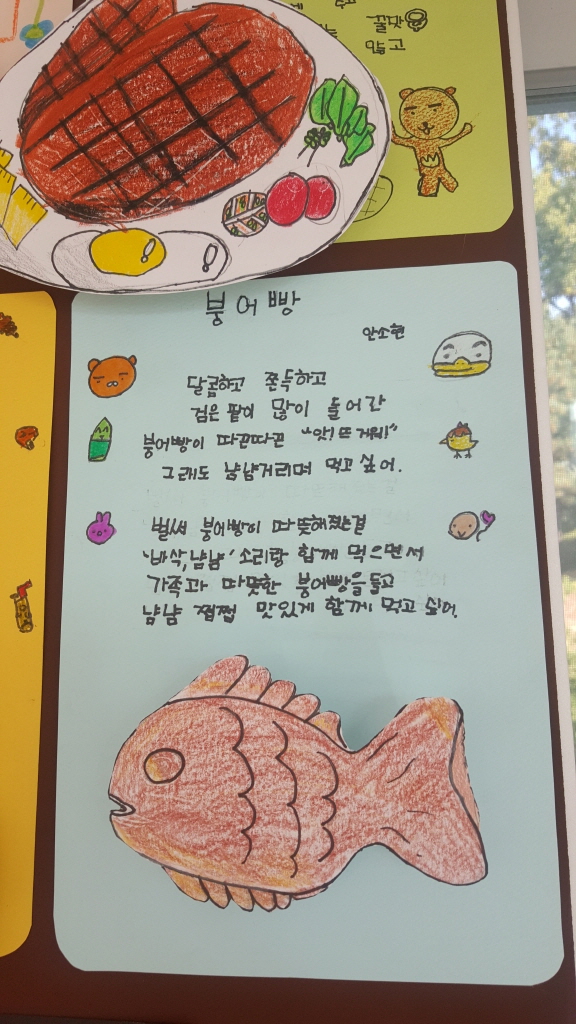 꿀맛
많고
붕어빵
안소현
달콤하고 쫀득하고
검은 팥이 많이 들어간
붕어빵이 따끈따끈 "앗! 뜨거워!"
그래도 냠냠거리며 먹고 싶어.
벌써 붕어빵이 따뜻해졌는걸
'바삭, 냠냠' 소리랑 함께 먹으면서
가족과 따뜻한 붕어빵을 들고
냠냠 쩝쩝 맛있게 함께 먹고 싶어.